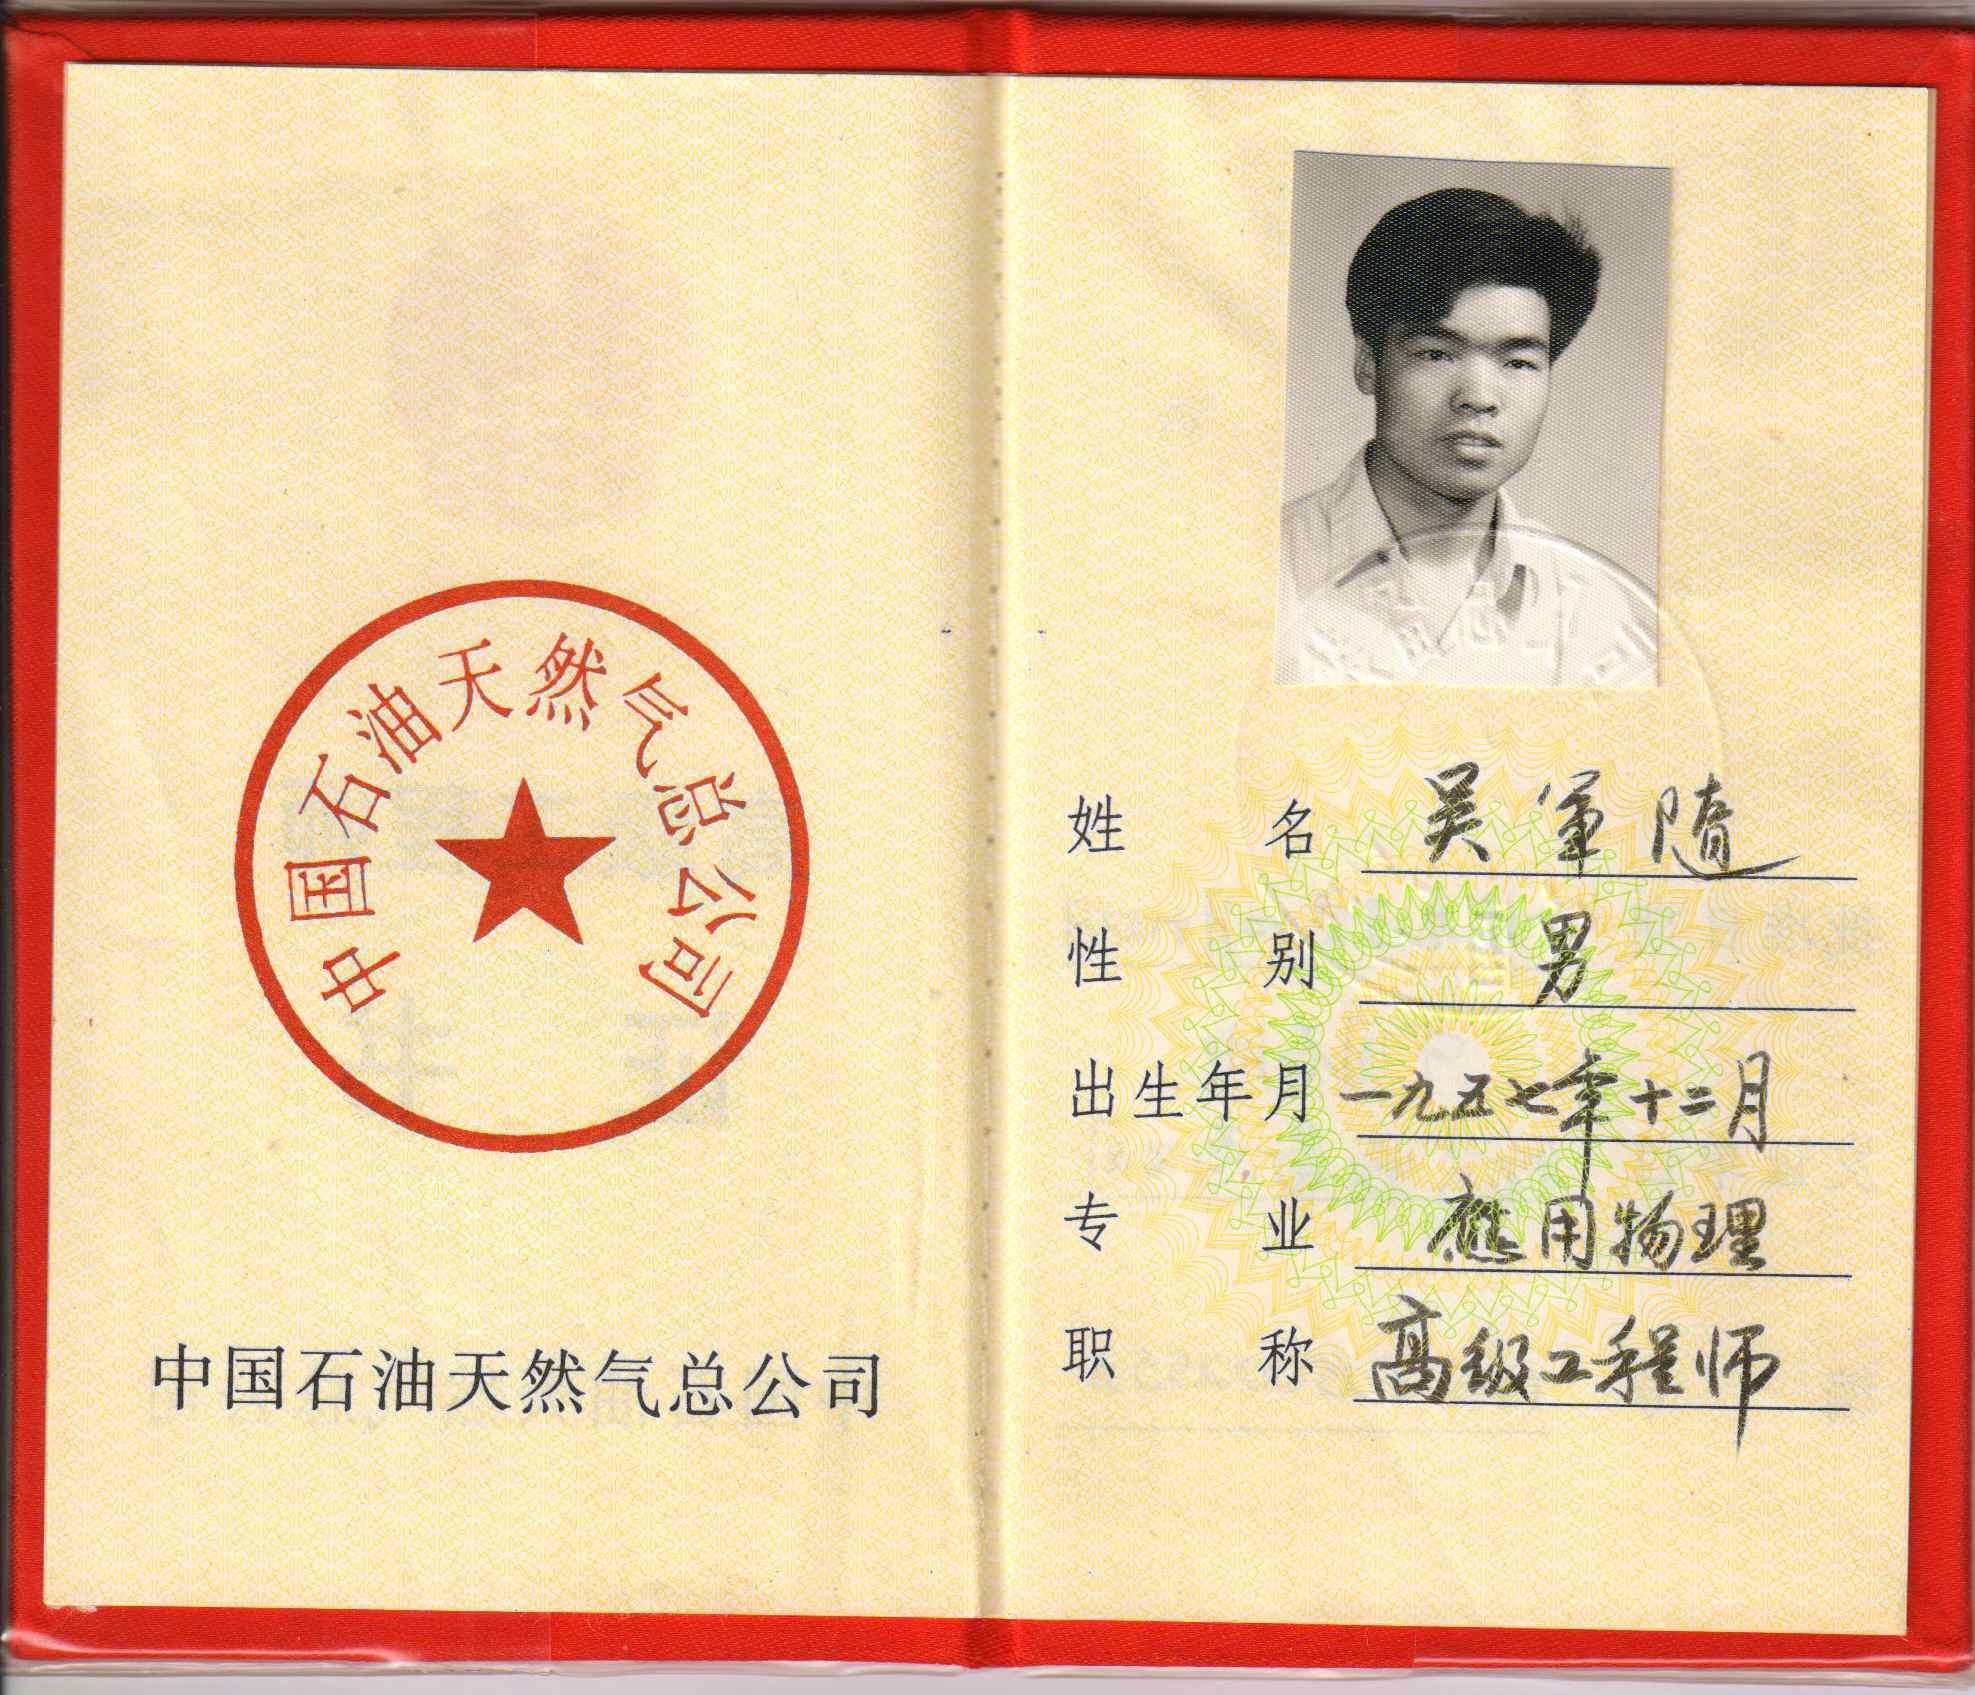 中国石油天然气总公司
中国石油天然气总公司
姓名 吴军随
性别 男
出生年月 一九五七年十二月
专业 應用物理
职称 高级工程师